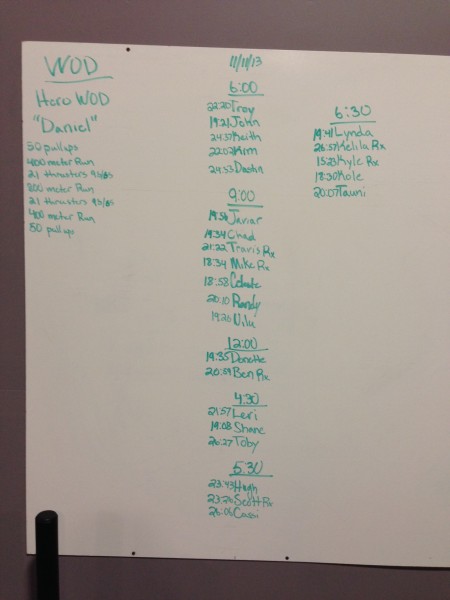 WOD
Hero WOD
"Daniel"
50 pullups
400 meter Run
21 thrusters 95/65
800 meter Run
21 thrusters 95/65
400 meter Run
50 pullups
11/11/13
6:00
22:20 Troy
19:21 John
24:57 Keith
22:02 Kim
24:53 Dustin
9:00
19:56 Javier
19:34 Chad
21:22 Travis Rx
18:34 Mike Rx
18:58 Celeste
20:10 Randy
19:20
12:00
19:35 Donette
20:59 Ben Rx
4:30
21:57 Leri
19:08 Shane
26:27 Toby
5:30
23:43 Hugh
23:20 Scott Rx
26:05 Cassi
6:30
19:41 Lynda
26:57 Kelila Rx
15:23 Kyle Rx
18:30 Kole
20:07 Tauni